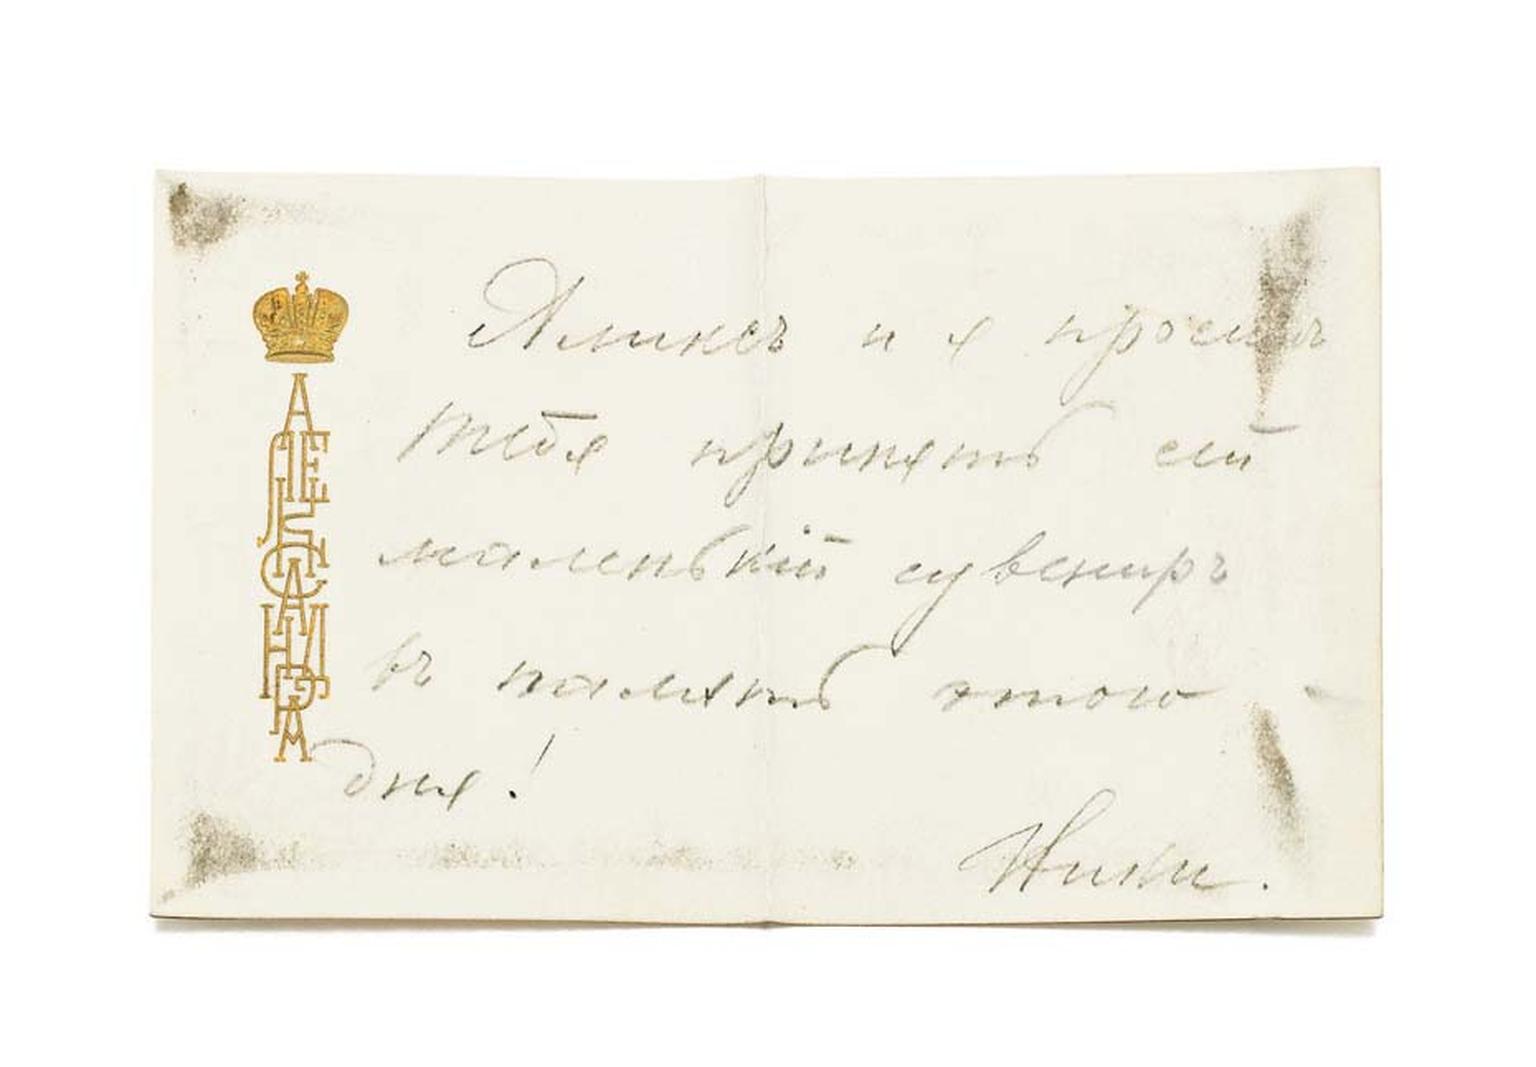 АЛЕКСАНДРА
Аликсъ и я просимъ
тебя принять сей
маленькій сувениръ
въ память этого -
дня!
Ники.